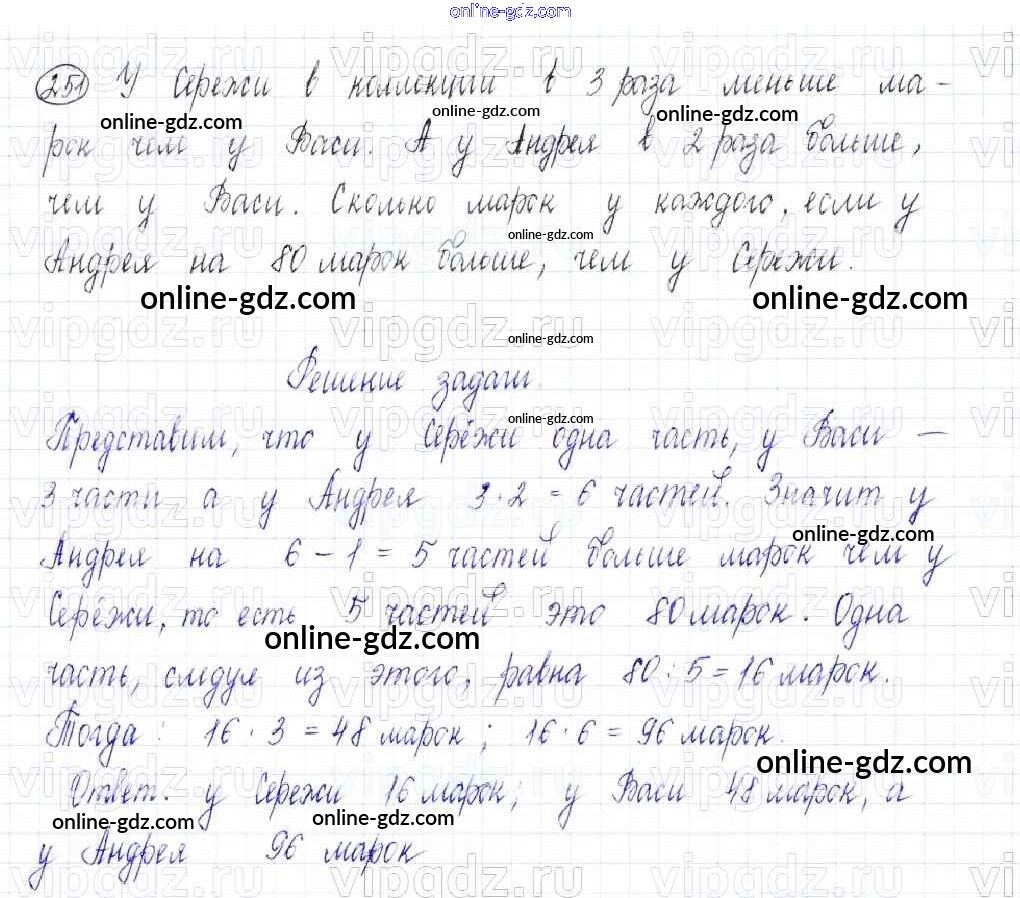 online-gdz.com
251 У Сережи в коллекции в 3 раза меньше ма-
online-gdz.com online-gdz.com
рок чем у Васи. А у Андрея в 2 раза больше,
чем у Васи. Сколько марок у каждого, если у
online-gdz.com
Андрея на 80 марок больше, чем у Сережи.
online-gdz.com online-gdz.com
online-gdz.com
Решение задачи.
online-gdz.com
Представим, что у Серёжи одна часть, у Васи —
3 части а у Андрея 3 · 2 = 6 частей. Значит у
online-gdz.com
Андрея на 6 - 1 = 5 частей больше марок чем у
Серёжи, то есть 5 частей это 80 марок. Одна
online-gdz.com
часть, следуя из этого, равна 80 : 5 = 16 марок.
Тогда : 16 · 3 = 48 марок ; 16 · 6 = 96 марок.
online-gdz.com
Ответ. у Сережи 16 марок; у Васи 48 марок, а
online-gdz.com online-gdz.com
у Андрея 96 марок
vipgdz.ru